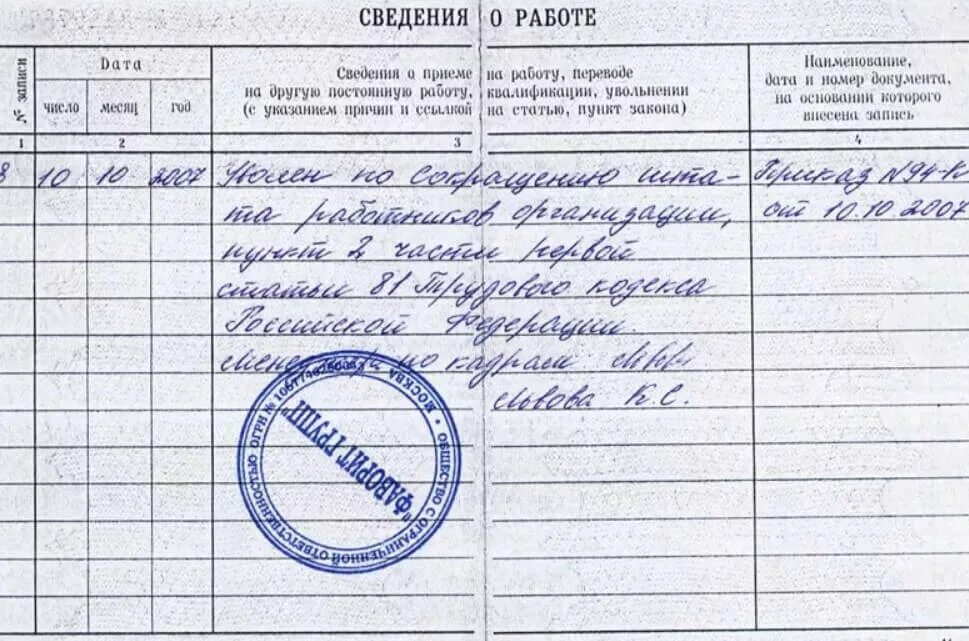 СВЕДЕНИЯ О РАБОТЕ
№ записи
Дата
число месяц год
Сведения о приеме на работу, переводе
на другую постоянную работу, квалификации, увольнении
(с указанием причин и ссылкой на статью, пункт закона)
Наименование,
дата и номер документа,
на основании которого
внесена запись
1 2 3 4
8 10 10 2007 Уволен по сокращению шта- Приказ N94-к
та работников организации, от 10.10.2007
пункт 2 части первой
статьи 81 Трудового кодекса
Российской Федерации.
Менеджер по кадрам
Львова К.С.
МОСКВА • ОБЩЕСТВО С ОГРАНИЧЕННОЙ ОТВЕТСТВЕННОСТЬЮ ОГРН №
"ФАВОРИТ ГРУПП"